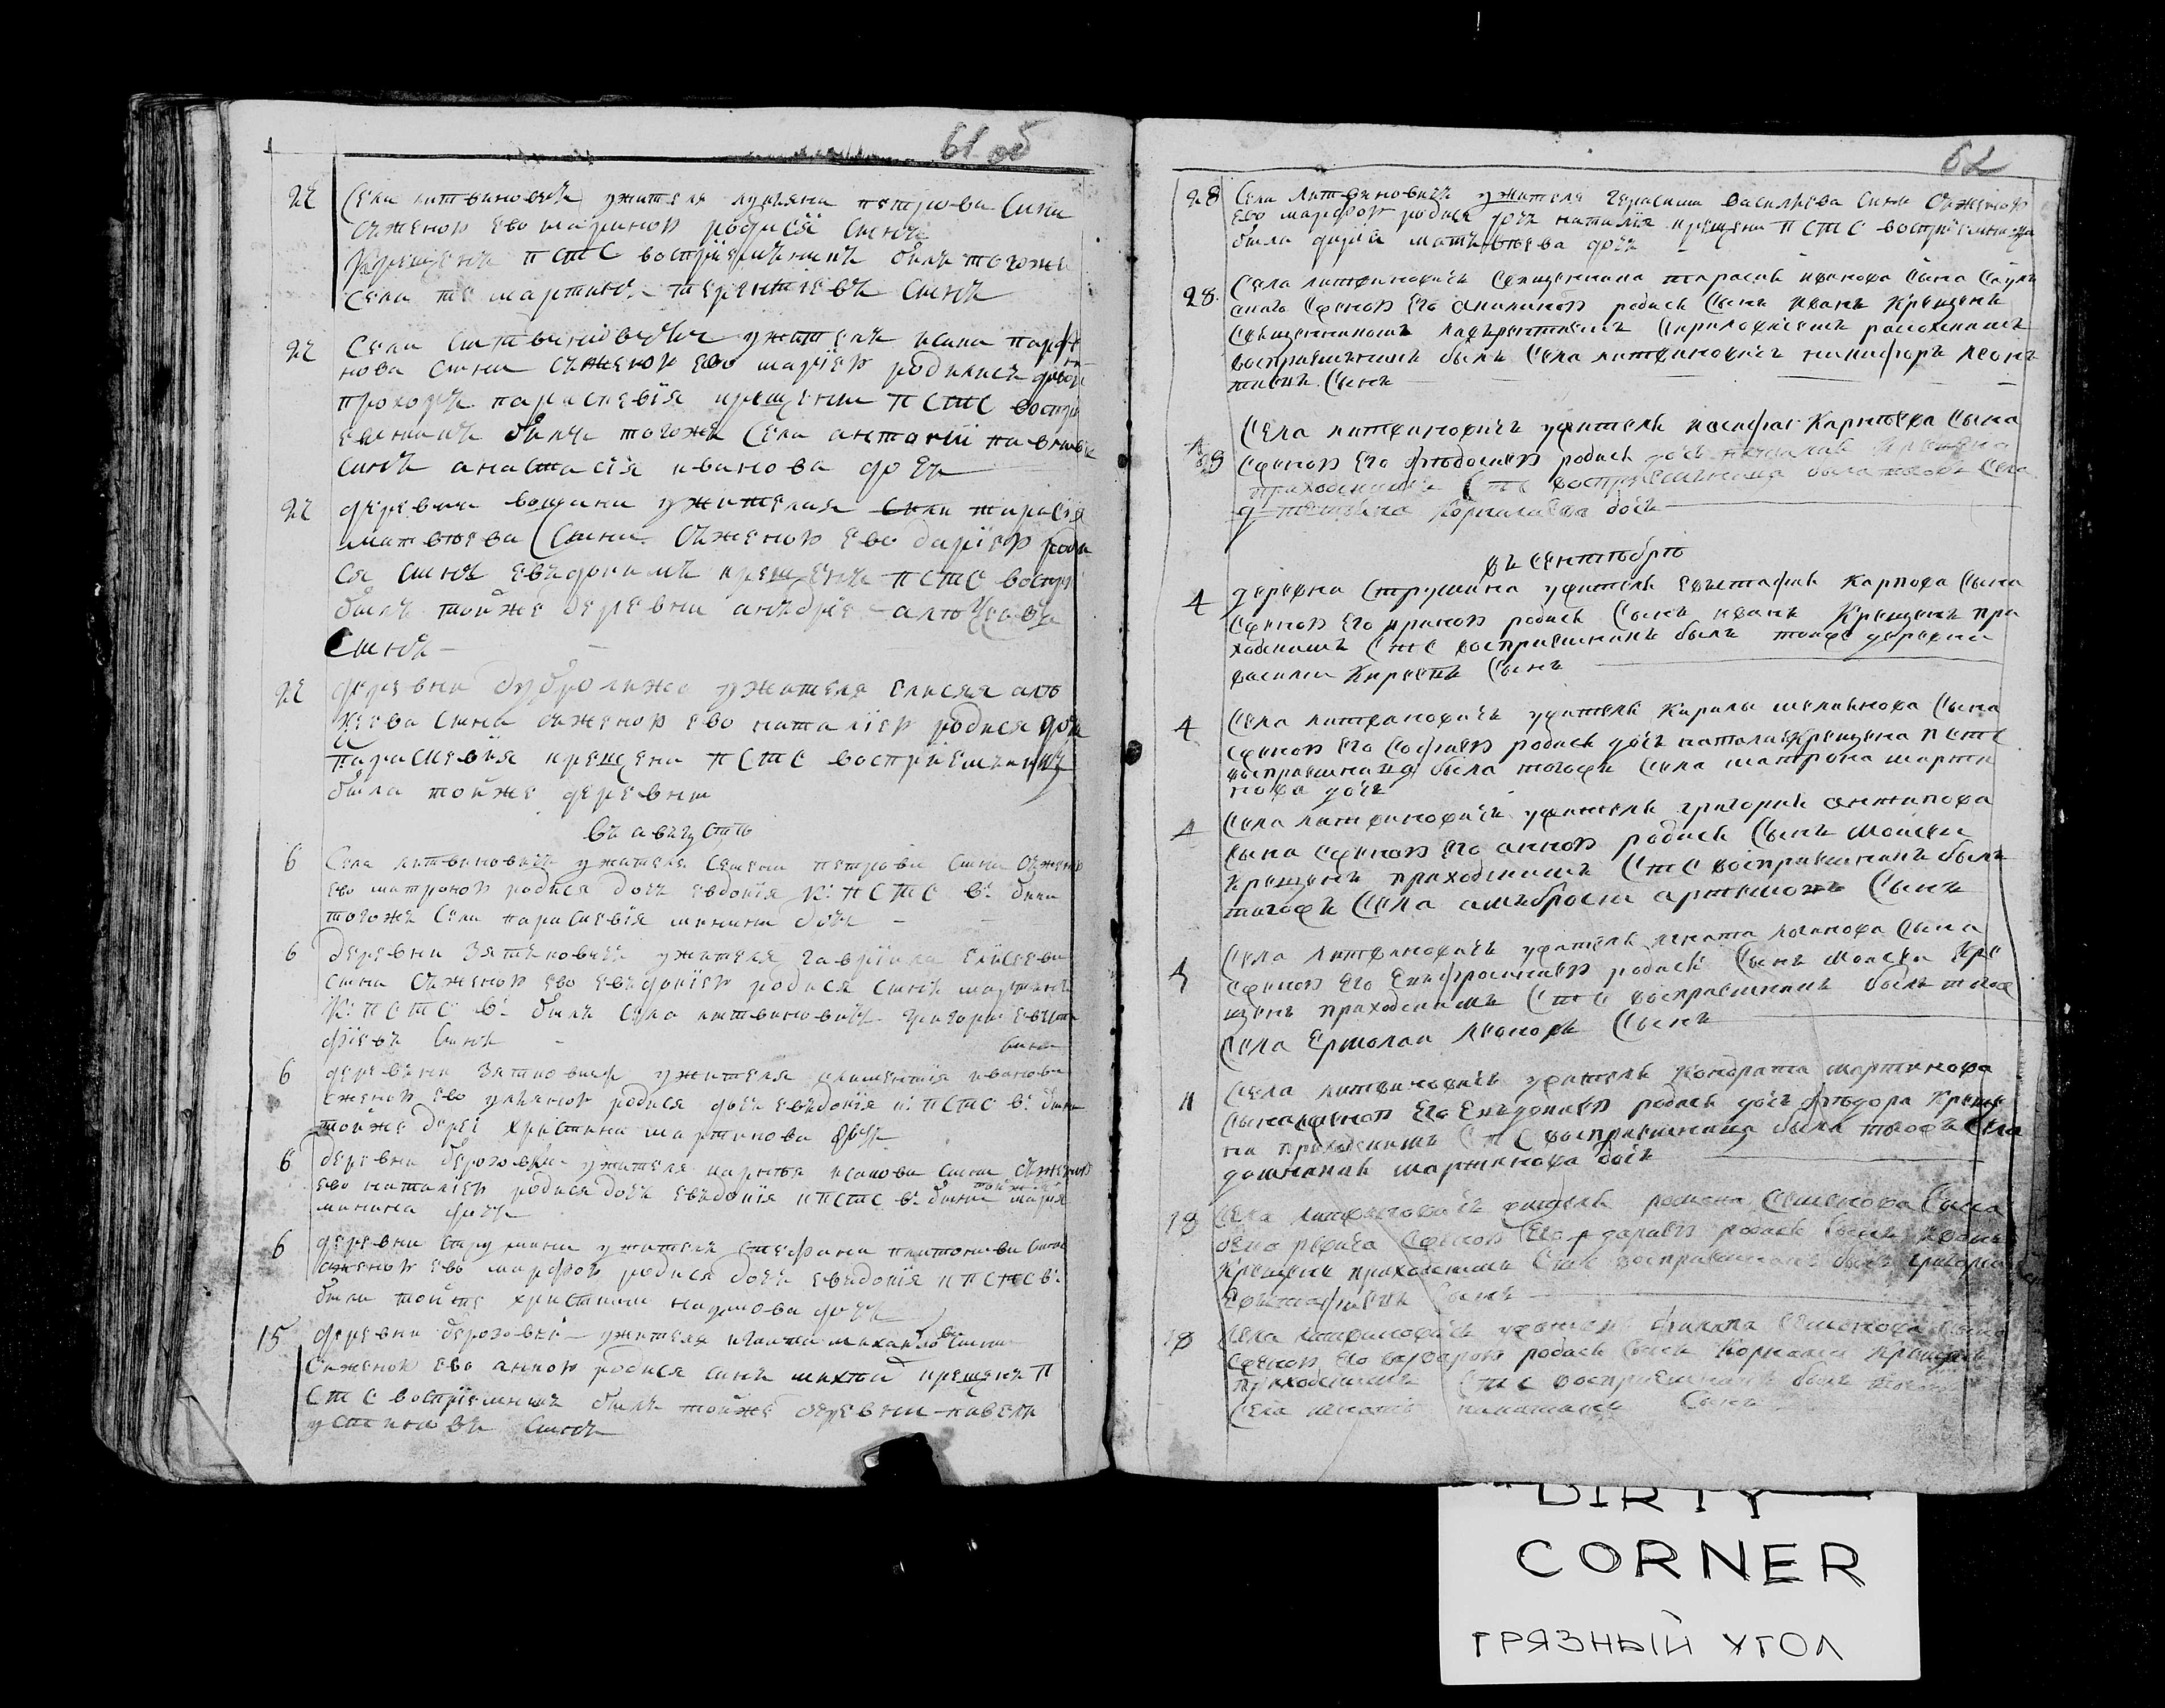 61 об
22 Села литвиновичъ у жителя лукяна петрова сина
съженою ево мариною родися синъ
крещенъ п с т с восприемъникъ былъ тогожъ
села мартинъ терентиевъ синъ
22 Села литвиновичъ у жителя исака парфе
нова сина съженою ево мариею родилась дочъ
параскевия крещени п с т с воспри
емникъ былъ тогожъ села антоний
синъ анастасия иванова дочъ
22 деревни вощини у жителя тарасия
матвеева сина съженою ево дариею роди
ся синъ евъдокимъ крещенъ п с т с воспри
былъ тойже деревни андрие алюхеевъ
синъ
22 деревни у жителя елисея алю
хеева сина съженою ево наталиею родися дочъ
параскевия крещена п с т с восприемъница
была тойже деревни
въ августъ
6 Села литвиновичъ у жителя семена петрова сина съженою
ево матроною родися дочъ евдокия к: п с т с в: была
тогожъ села параскевия минина дочъ
6 деревни зятьковичъ у жителя гавриила елисеева
сина съженою ево евъдокиею родися синъ мартинъ
к: п с т с в: былъ села литвиновичъ григори евъста
фиевъ синъ
6 деревъни зятковичъ у жителя климентия иванова сина
сженою ево улияною родися дочъ евъдокия к: п с т с в: была
тойже дерев христина мартинова дочъ
6 деревни березовки у жителя карпъя исакова сина съженою
ево наталиею родися дочъ евъдокия к п с т с в: была тойже мария
минина дочъ
6 деревни струмини у жителя стефана сина
съженою ево марфою родися дочъ евъдокия к п с т с в:
была тойже христина наумова дочъ
15 деревни березовки у жителя игнати михайлова сина
съженою ево анною родися синъ михей крещенъ п
с т с восприемникъ былъ тойже деревни павелъ
устиновъ синъ
62
28 Села литвиновичъ у жителя герасима василиева сина съженою
ево марфою родися дочъ наталия крещена п с т с восприемница
была дария матъвеева дочъ
28 Села литвиновичъ священника тарасия иванова сына
сженою его акилиною родися сынъ иванъ крещенъ
священникомъ лаврентиемъ кириловичемъ
восприемникъ былъ села литвиновичъ никифоръ леон
тиевъ сынъ
29 Села литвиновичъ у жителя иосифа карпъева сына
сженою его феодосиею родися дочъ наталия крещена
приходскимъ с т с восприемница была тогожъ села
устинна корнилиева дочъ
въ сентябрю
4 деревни струмини у жителя евъстафия карпова сына
сженою его ириною родися сынъ иванъ крещенъ при
ходскимъ с т с восприемникъ былъ тойже деревни
василии киреевъ сынъ
4 Села литвиновичъ у жителя кирилы сына
сженою его софиею родися дочъ наталия крещена п с т с
восприемница была тогожъ села матрона марти
нова дочъ
4 Села литвиновичъ у жителя григория антипова
сына сженою его анною родися сынъ моисеи
крещенъ приходскимъ с т с восприемникъ былъ
тогожъ села амъбросии артемовъ сынъ
4 Села литвиновичъ у жителя игната логинова сына
сженою его ефросиниею родися сынъ моисеи кре
щенъ приходскимъ с т с восприемникъ былъ тогож
села ермолаи леоновъ сынъ
11 Села литвиновичъ у жителя кондрата мартинова
сына сженою его евъдокиею родися дочъ феодора креще
на приходскимъ с т с восприемница была тогожъ села
домникия мартинова дочъ
18 Села литвиновичъ жителя романа семенова сына
сженою его дариею родися сынъ
крещенъ приходскимъ с т с восприемникъ былъ григории
евъстафиевъ сынъ
18 Села литвиновичъ у жителя филипа семенова сына
сженою его варварою родися сынъ корнилии крещенъ
приходскимъ с т с восприемникъ былъ тогожъ
села сынъ
DIRTY
CORNER
ГРЯЗНЫЙ УГОЛ